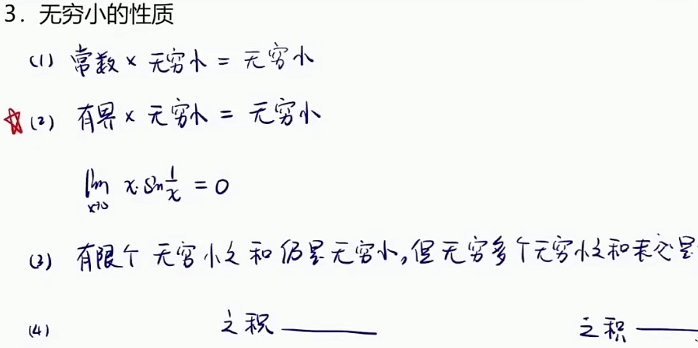 3. 无穷小的性质
(1) 常数 × 无穷小 = 无穷小
(2) 有界 × 无穷小 = 无穷小
lim x→0 x·sin 1/x = 0
(3) 有限个 无穷小之和仍是无穷小,但无穷多个无穷小之和未必是
(4) 之积 ——— 之积 ———